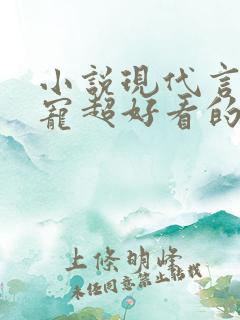 小說現代言
寵超好看的
上條明峰
未經同意禁止轉載